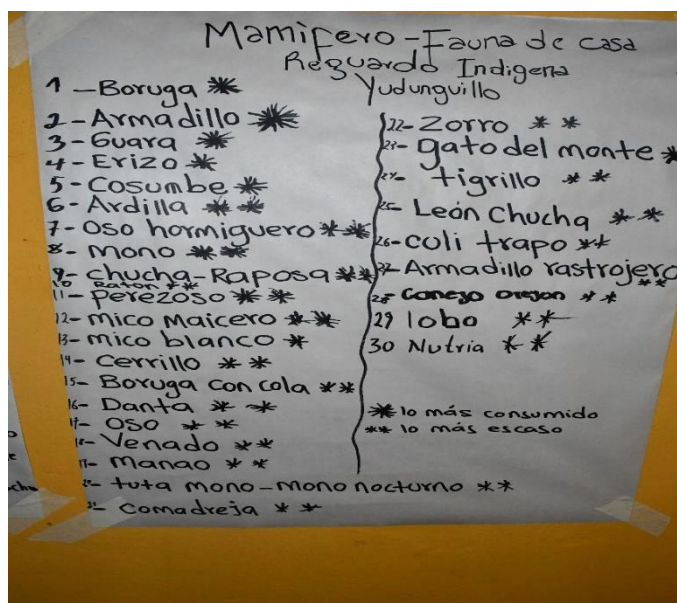 Mamifero - Fauna de casa
Reguardo Indigena
Yudunguillo
1 - Boruga *
2 - Armadillo *
3 - Guara *
4 - Erizo *
5 - Cosumbe *
6 - Ardilla * *
7 - Oso hormiguero * *
8 - mono * *
9 - chucha - Raposa * *
10 Raton * *
11 - Perezoso * *
12 - mico maicero * *
13 - mico blanco *
14 - Cerrillo * *
15 - Boruga con cola * *
16 - Danta * *
17 - Oso * *
18 - Venado * *
19 - manao * *
20 - tuta mono - mono nocturno * *
21 - Comadreja * *
22 - Zorro * *
23 - gato del monte *
24 - tigrillo * *
25 - León Chucha * *
26 - coli trapo * *
27 - Armadillo rastrojero * *
28 - Conejo orejon * *
29 lobo * *
30 Nutria * *
* lo más consumido
** lo más escaso